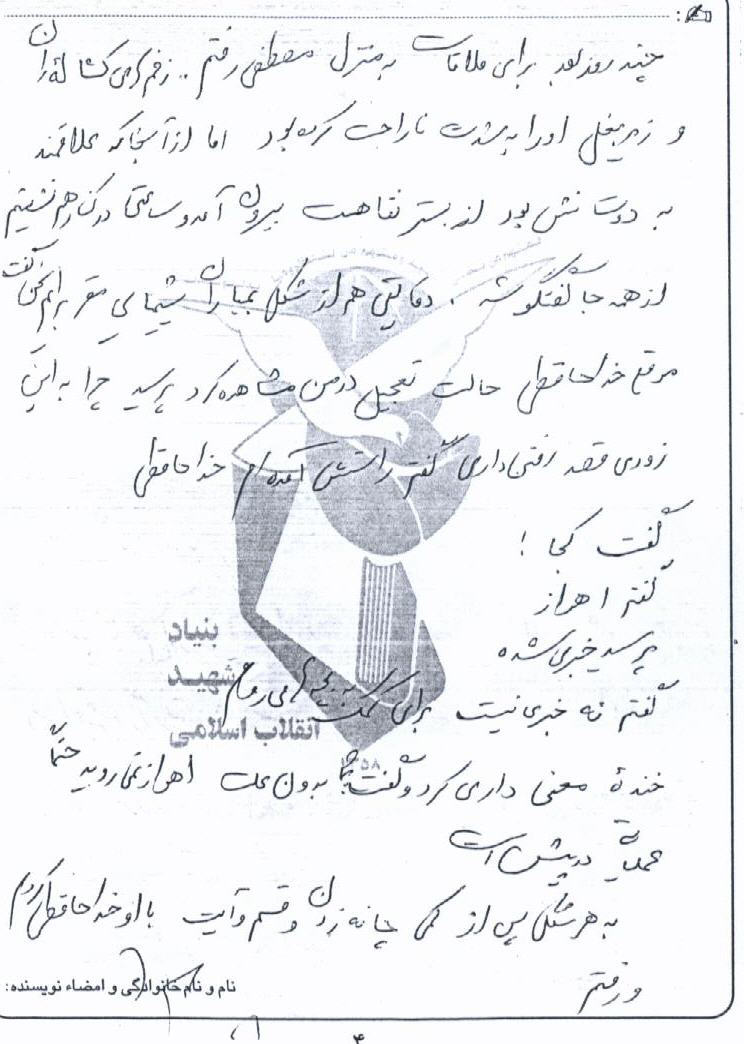 چند روز بعد برای ملاقات به منزل مصطفی رفتم .. زخم های کشاله ران
و زیر بغل او را به شدت ناراحت کرده بود اما از آنجا که علاقمند
به دوستانش بود از بستر نقاهت بیرون آمد و ساعتی در کنار هم نشستیم
از همه جا گفتگو شد . دقایقی هم از شکل بمباران شیمیایی مقر برایم گفت
موقع خداحافظی حالت تعجیل در من مشاهده کرد پرسید چرا به این
زودی قصد رفتن داری گفتم راستش آمده ام خداحافظی
گفت کجا !
گفتم اهواز
پرسید خبری شده
گفتم نه خبری نیست برای کمک به بچه ها می روم
خندهٔ معنی داری کرد و گفت شما بدون علت اهواز نمی روید حتماً
عملیاتی در پیش است
به هر شکل پس از کمی چانه زدن و قسم و آیت با او خداحافظی کردم
و رفتم
نام و نام خانوادگی و امضاء نویسنده:
۴
بنیاد
شهید
انقلاب اسلامی
۱۳۵۸